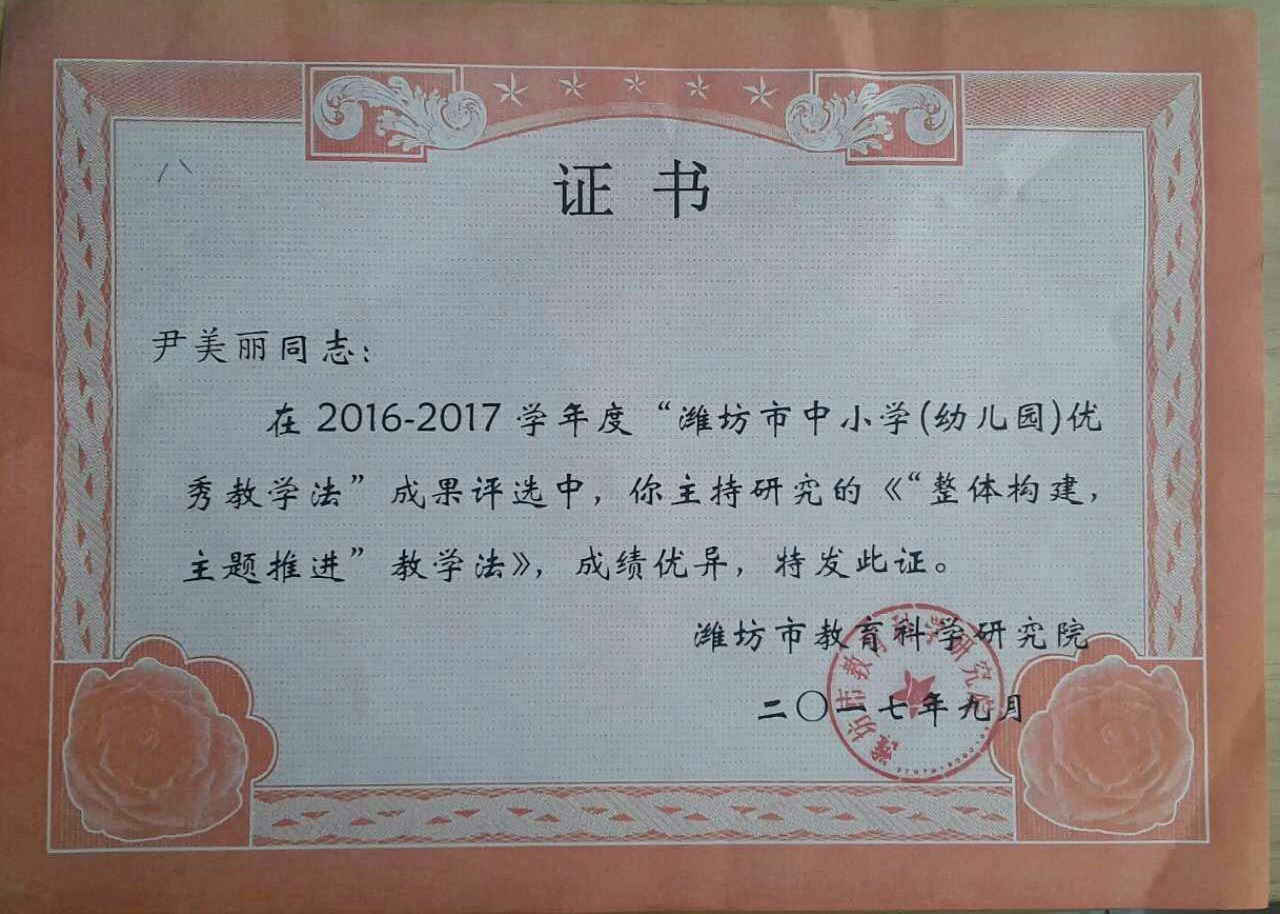 证书
尹美丽同志：
在 2016-2017 学年度“潍坊市中小学(幼儿园)优
秀教学法”成果评选中，你主持研究的《“整体构建，
主题推进”教学法》，成绩优异，特发此证。
潍坊市教育科学研究院
潍坊市教育科学研究院
二〇一七年九月